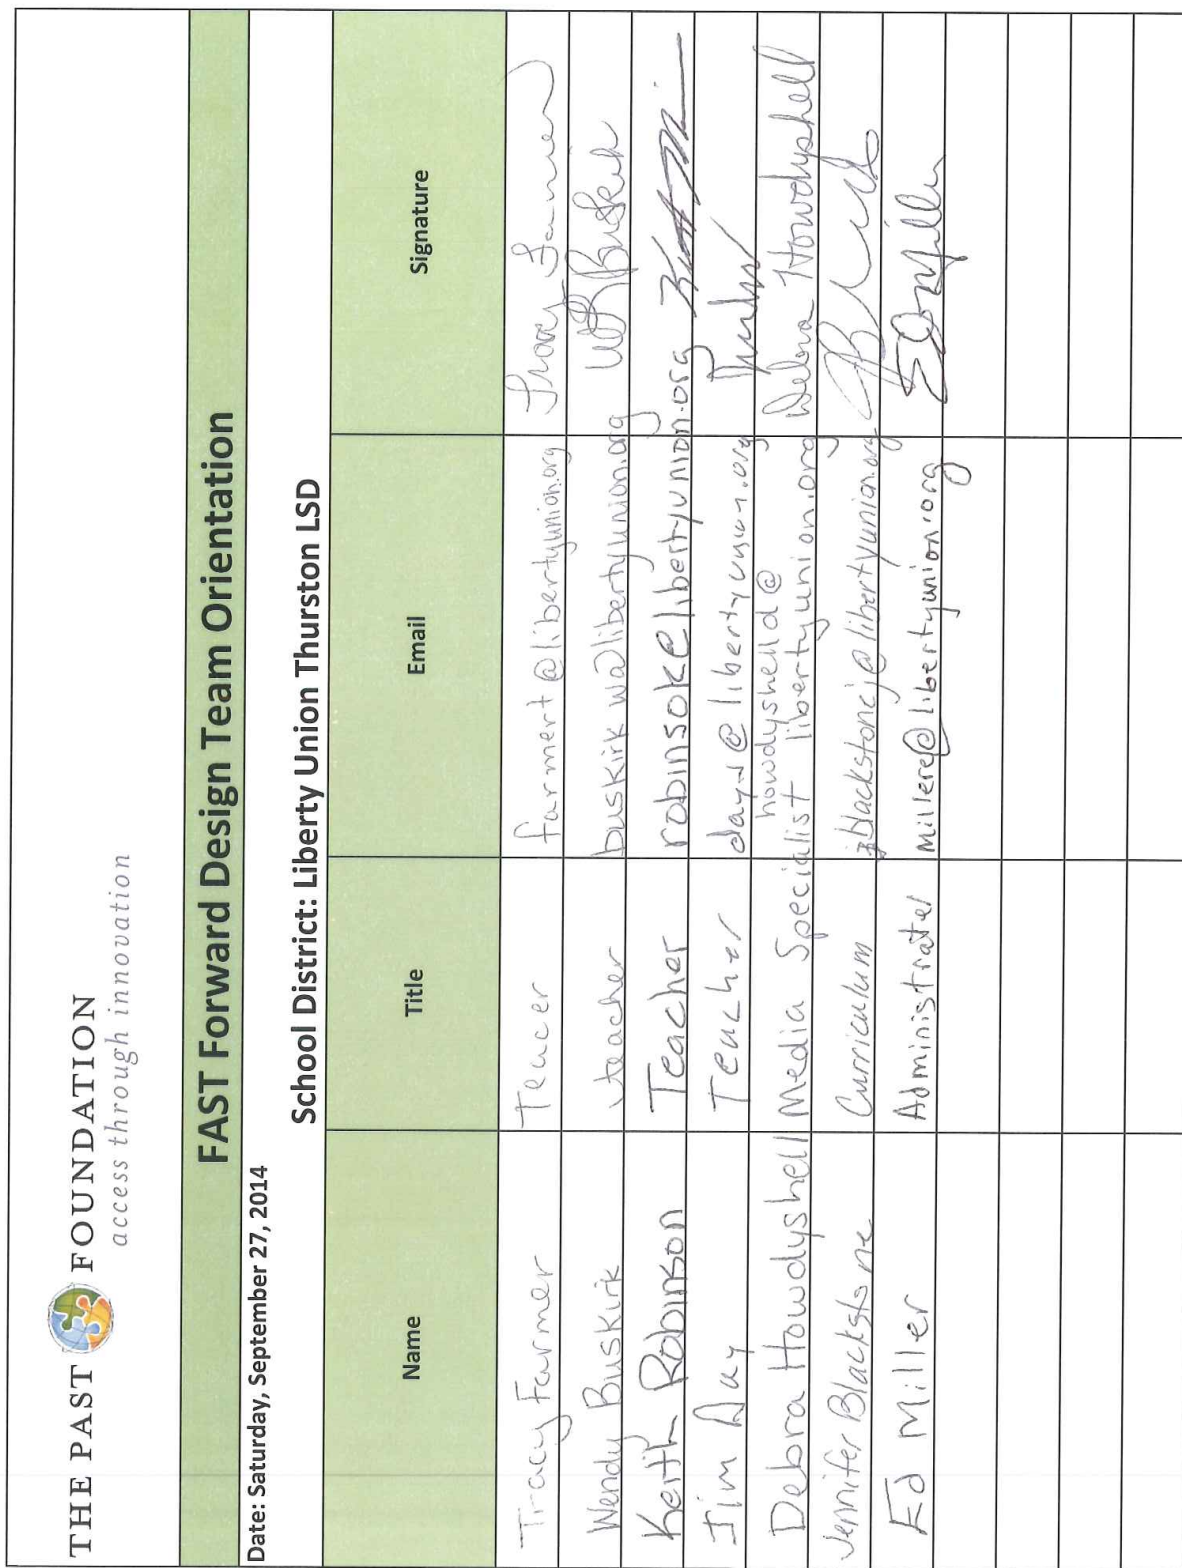 THE PAST FOUNDATION
access through innovation
FAST Forward Design Team Orientation
Date: Saturday, September 27, 2014
School District: Liberty Union Thurston LSD
Name Title Email Signature
Tracy Farmer Teacer farmert@libertyunion.org Tracy Farmer
Wendy Buskirk teacher buskirkw@libertyunion.org WBuskirk
Keith Robinson Teacher robinsok@libertyunion.org
Jim Day Teacher dayj@libertyunion.org
Debra Howdyshell Media Specialist howdyshelld@
libertyunion.org Debra Howdyshell
Jennifer Blackstone Curriculum blackstonej@libertyunion.org
Ed Miller Administrator millere@libertyunion.org EdMiller